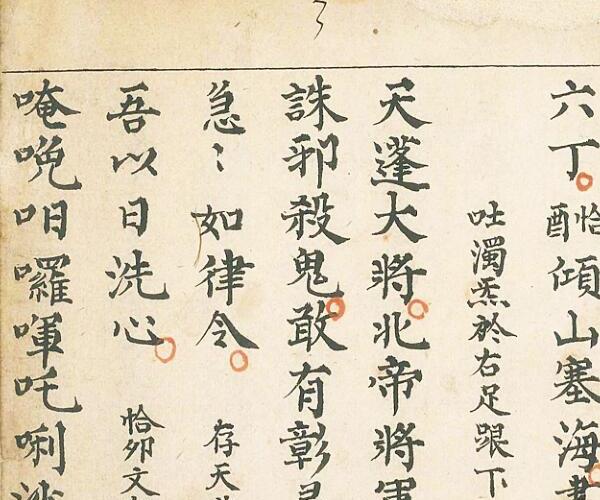 六丁恰傾山塞海
吐濁炁於右足跟下
天蓬大將北帝將軍
誅邪殺鬼敢有彰
急〻如律令 存天
吾以日洗心 恰卯文
唵囉喗吒唎